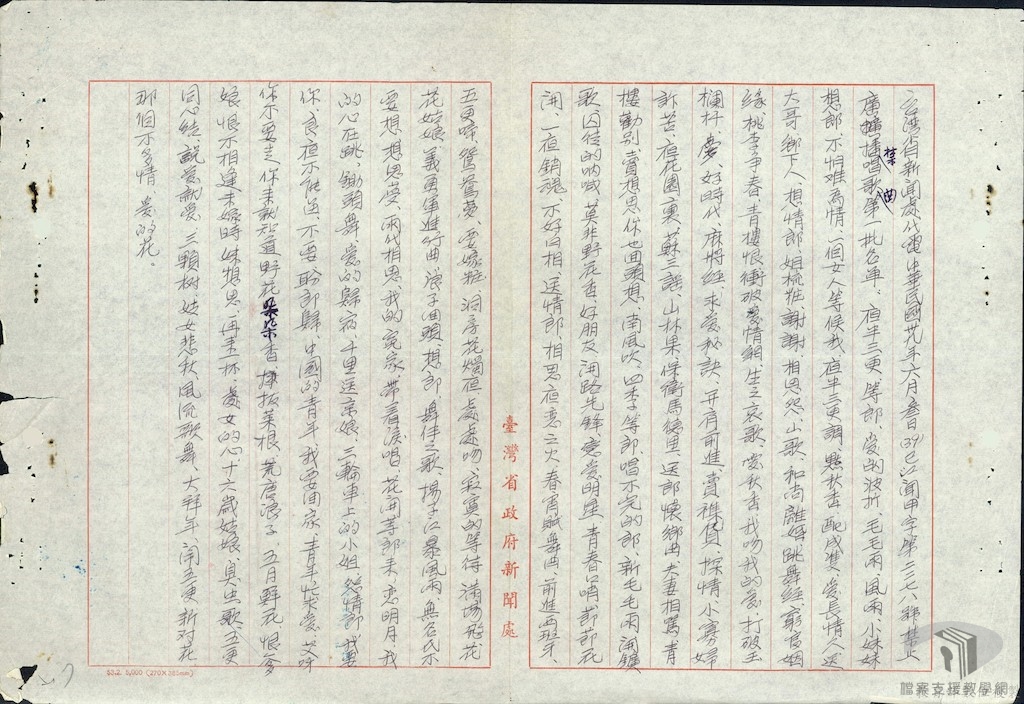 台灣省新聞處代電中華民國卅九年六月叁日(39)巳江聞甲字第二三七八號禁止
廣播播唱歌禁曲第一批名單：夜半三更、等郎、愛的波折、毛毛雨、風雨、小妹妹
想郎、不怕難為情、一個女人等候我、夜半三更調、點秋香、配成雙、愛長情人、送
大哥、鄉下人、想情郎、姐梳粧、謝謝、相思怨、山歌、和尚離婚、跳舞經、窮富姻
緣、桃李爭春、青樓恨、衝破愛情網、生之哀歌、愛秋香、我吻我的愛、打破玉
欄杆、夢、好時代、麻將經、求愛秘訣、開前進、賣雜貨、探情、小寡婦
訴苦、夜花園裏、蘇三謠、山林果、保衛馬德里、送郎、懷鄉曲、夫妻相罵、青
樓勸別、賣想思、你也回頭想想、南風吹、四季等郎、唱不完的郎、新毛毛雨、開鑛
歌、囚徒的吶喊、莫非野花香、好朋友、開路先鋒、戀愛明星、青春、哨、節節花
開、一夜銷魂、不好白相、送情郎、相思夜、戀之火、春宵舞曲、前進兩世、
臺灣省政府新聞處
五更啼、鴛鴦夢、要嫁粧、洞房花燭夜、處處吻、寂寞的等待、滿場飛、花
花姑娘、義勇軍進行曲、浪子回頭、想郎、舞伴之歌、揚子江暴風雨、無名氏、不
要想、想思夢、兩代相思、我的冤家、帶着淚唱、花開等郎來、戀明月、我
的心在跳、鋤頭舞、愛的歸宿、十里送京娘、三輪車上的小姐、怨情郎、我要
你、良夜不能送、不要、盼郎歸、中國的青年、我要回家、青年、愛、艾呀
你不要走、你未就知道、野花朵朵香、拔菜根、荒唐浪子、五月鮮花、恨爹
娘、恨不相逢未嫁時、妹想思、再來一杯、處女的心、十六歲姑娘、臭虫歌、五更
同心結、說愛就愛、三顆樹、妓女悲秋、風流歌舞、大拜年、鬧五更、新對花
那個不多情、愛的花。
53.2. 5,000 (270×385mm)
檔案支援教學網